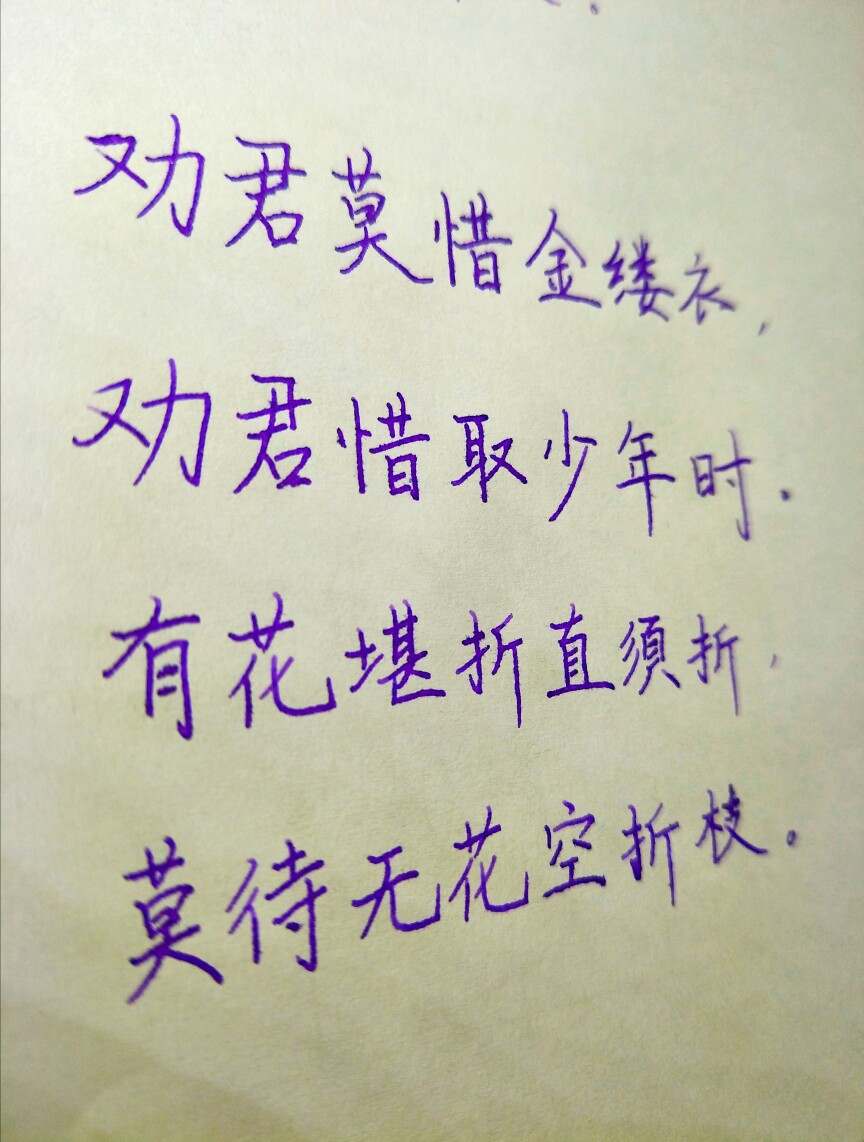 劝君莫惜金缕衣，
劝君惜取少年时.
有花堪折直须折，
莫待无花空折枝.